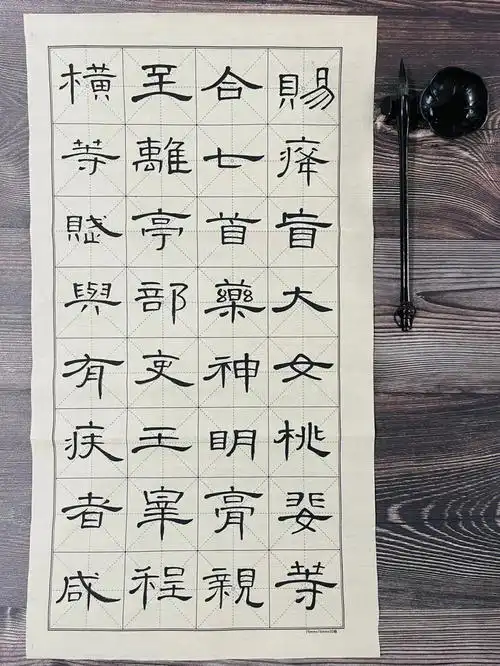 賜癃盲大女桃婓等
合七首藥神明膏親
至離亭部吏王皋程
橫等賦與有疾者咸